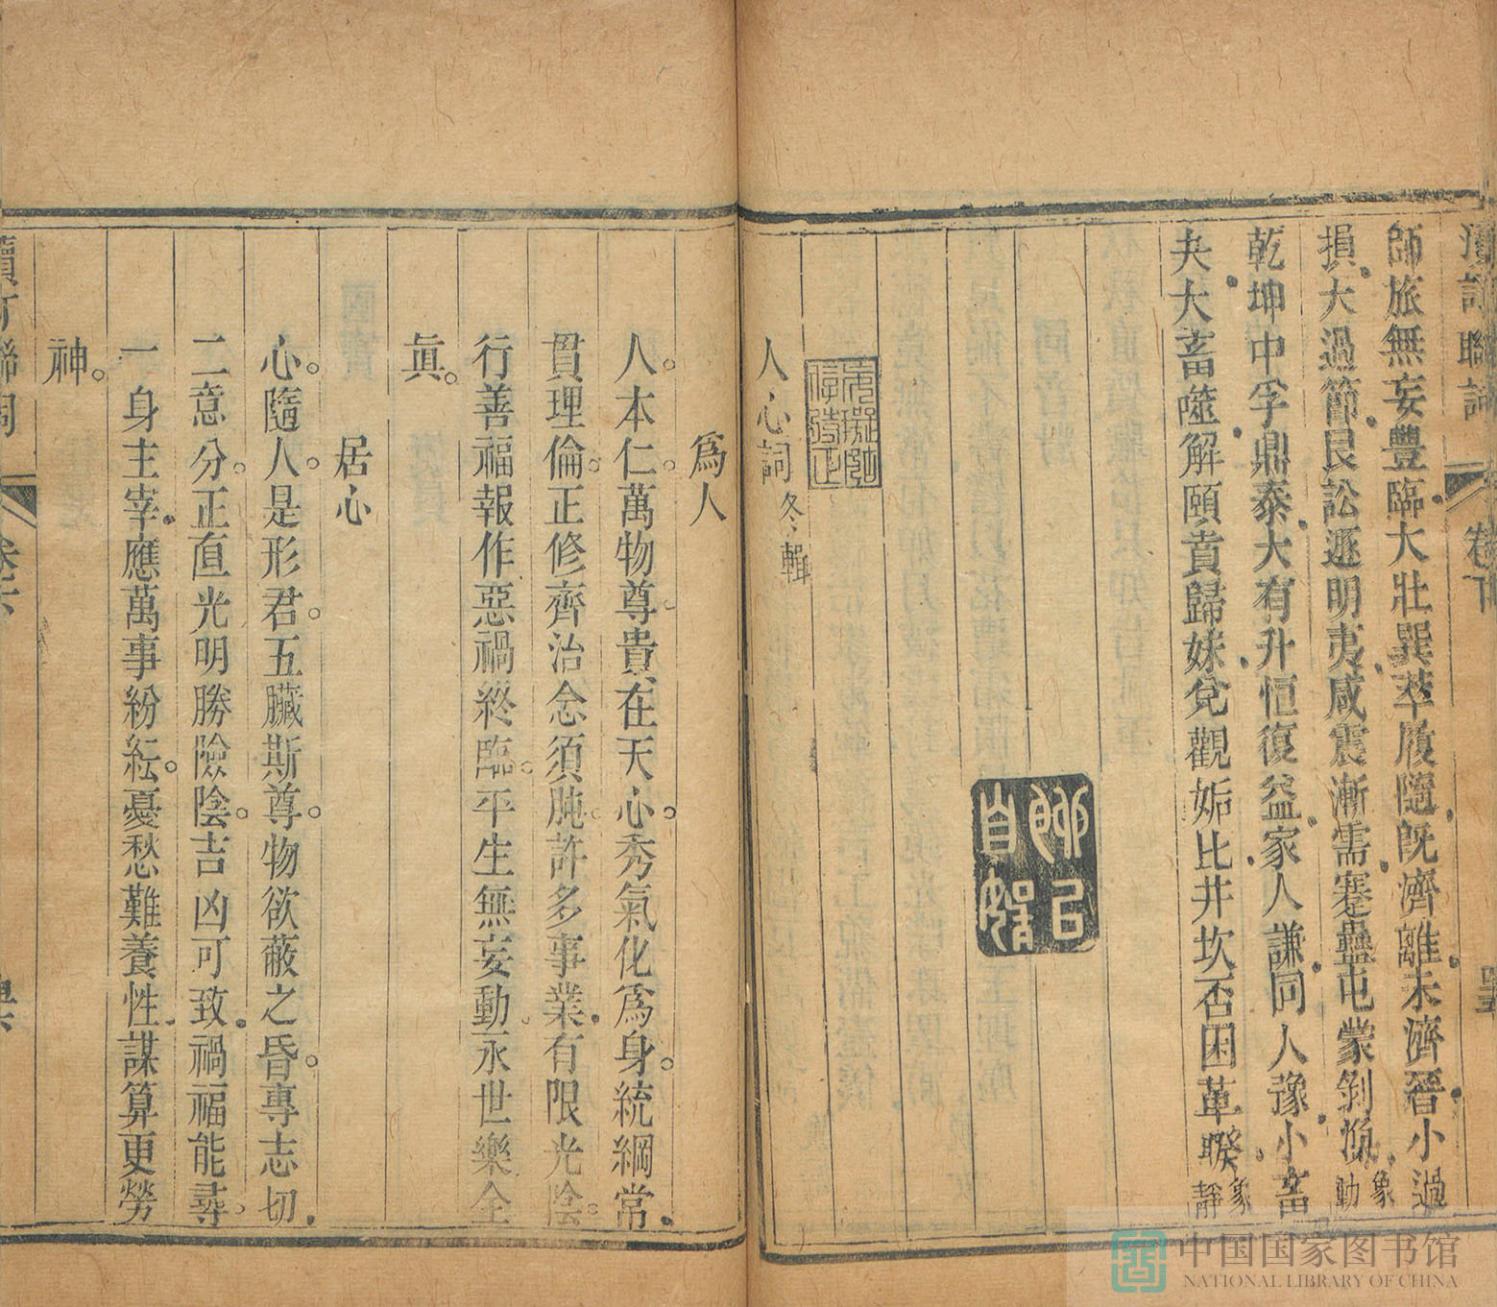 師旅無妄豐臨大壯巽萃履隨既濟離未濟晉小過
損大過節艮訟遯明夷咸震漸需蹇蠱屯蒙剝順動象
乾坤中孚鼎泰大有升恒復益家人謙同人豫小畜
夬大畜噬解頤賁歸妹兌觀姤比井坎否困革睽靜象
人心詞冬輯
爲人
人本仁萬物尊貴在天心秀氣化爲身統綱常
貫理倫正修齊治念須肫許多事業有限光陰
行善福報作惡禍終臨平生無妄動永世樂全
眞
居心
心隨人是形君五臟斯尊物欲蔽之昏專志切
二意分正直光明勝險陰吉凶可致禍福能尋
一身主宰應萬事紛紜憂愁難養性謀算更勞
神
中国国家图书馆
NATIONAL LIBRARY OF CHINA